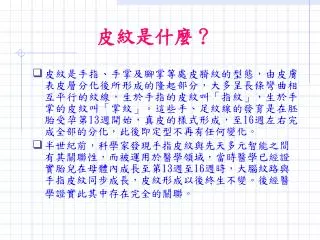 皮紋是什麼？
皮紋是手指、手掌及腳掌等處皮膚紋的型態，由皮膚
表皮層分化後所形成的隆起部分，大多呈長條彎曲相
互平行的紋線。生於手指的皮紋叫「指紋」，生於手
掌的皮紋叫「掌紋」。這些手、足紋線的發育是在胚
胎受孕第13週開始，真皮的樣式形成，至16週左右完
成全部的分化，此後即定型不再有任何變化。
半世紀前，科學家發現手指皮紋與先天多元智能之間
有其關聯性，而被運用於醫學領域，當時醫學已經證
實胎兒在母體內成長至第13週至16週時，大腦紋路與
手指皮紋同步成長，皮紋形成以後終生不變。後經醫
學證實此其中存在完全的關聯。